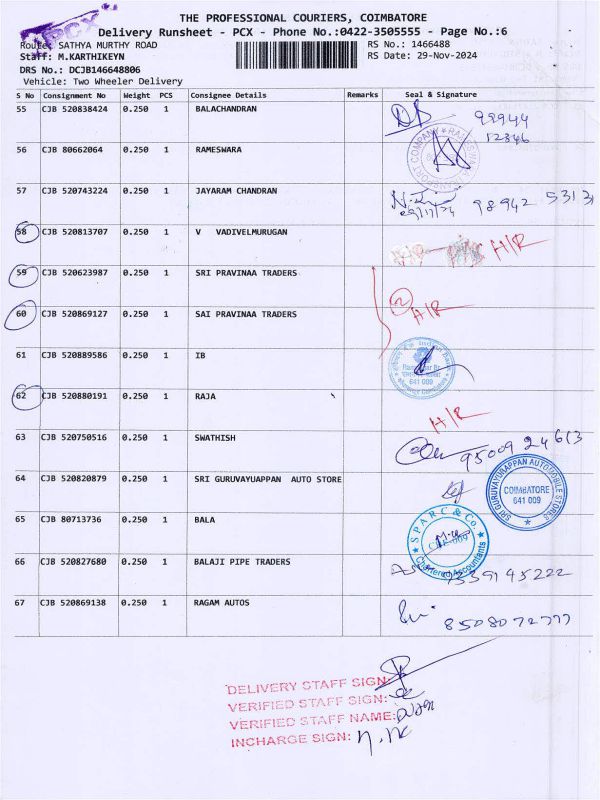 PCX
THE PROFESSIONAL COURIERS, COIMBATORE
Delivery Runsheet - PCX - Phone No.:0422-3505555 - Page No.:6
Route: SATHYA MURTHY ROAD
RS No.: 1466488
Staff: M.KARTHIKEYN
RS Date: 29-Nov-2024
DRS No.: DCJB146648806
Vehicle: Two Wheeler Delivery
S No Consignment No Weight PCS Consignee Details Remarks Seal & Signature
55 CJB 520838424 0.250 1 BALACHANDRAN
99944
12346
56 CJB 80662064 0.250 1 RAMESWARA
57 CJB 520743224 0.250 1 JAYARAM CHANDRAN
29/11/24 98942 53131
58 CJB 520813707 0.250 1 V VADIVELMURUGAN
H/R
59 CJB 520623987 0.250 1 SRI PRAVINAA TRADERS
60 CJB 520869127 0.250 1 SAI PRAVINAA TRADERS
H/R
61 CJB 520889586 0.250 1 IB
641 009
62 CJB 520880191 0.250 1 RAJA
H/R
63 CJB 520750516 0.250 1 SWATHISH
95009 24613
64 CJB 520820879 0.250 1 SRI GURUVAYUAPPAN AUTO STORE
SRI GURUVAYURAPPAN AUTOMOBILE STORES
COIMBATORE
641 009
65 CJB 80713736 0.250 1 BALA
SPARC & Co.
Chartered Accountants
66 CJB 520827680 0.250 1 BALAJI PIPE TRADERS
9339145222
67 CJB 520869138 0.250 1 RAGAM AUTOS
8508072777
DELIVERY STAFF SIGN:
VERIFIED STAFF SIGN:
VERIFIED STAFF NAME:
INCHARGE SIGN: